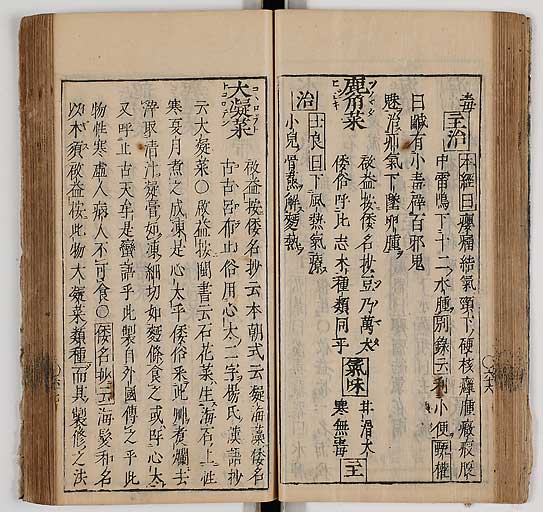 毒
主治 本經曰癭瘤結氣頸下硬核癰腫癥瘕腹
中雷鳴下十二水腫別錄云利小便甄權
曰鹹有小毒辟百邪鬼
魅治疝氣下墜卵腫
鹿角菜
啟益按倭名抄豆乃萬太
倭俗呼比志木種類同乎
氣味
甘滑大
寒無毒
主
治
士良曰下風熱氣療
小兒骨蒸解麪熱
大凝菜
コヽロブト
トコロテン
啟益按倭名抄云本朝式云凝海藻倭名
古古呂布止俗用心太二字楊氏漢語抄
云大凝菜〇啟益按閩書云石花菜生海石上性
寒夏月煮之成凍是心太乎倭俗采此州煮爛去
滓取清汁凝膏如凍細切如麪條食之或呼心太
又呼止古天牟是蠻語乎此製自外國傳之乎此
物性寒虛人病人不可食〇倭名抄云海髮和名
以木須啟益按此物大凝菜類種而其製修之法